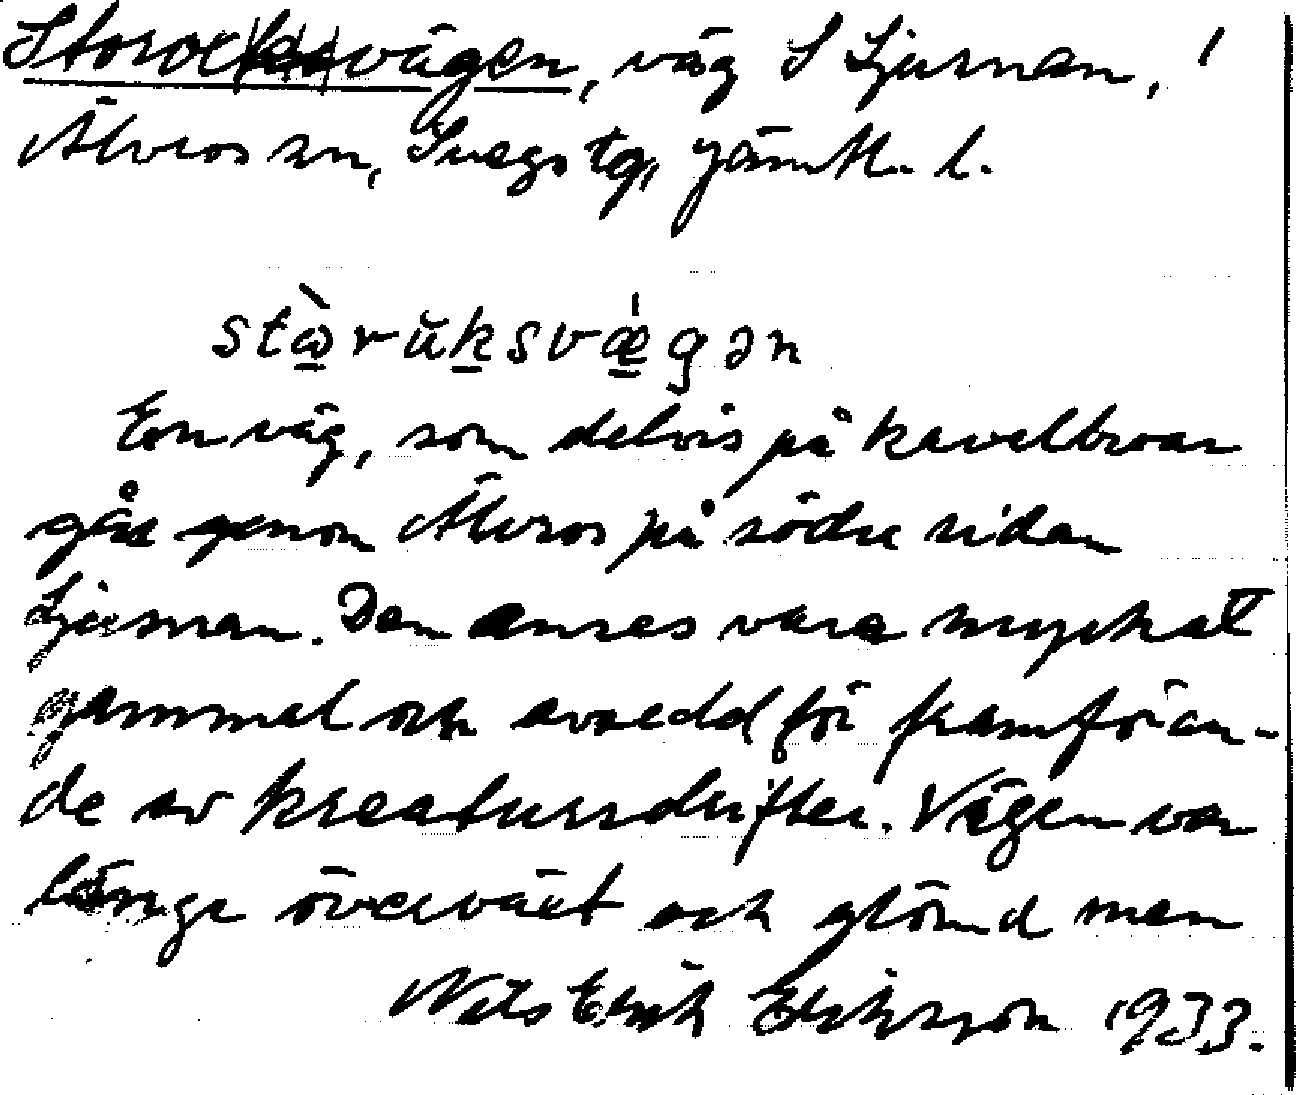 Storocksvägen, väg S Ljusnan, /
Älvros sn, Svegs tg, Jämtl. l.
stɷ̀rŭksvǽgən
En väg, som delvis på kavelbroar
går genom Älvros på södra sidan
Ljusnan. Den anses vara mycket
gammal och avsedd för framföran-
de av kreatursdrifter. Vägen var
länge överväxt och glömd men
Nils Erik Eriksson 1933.